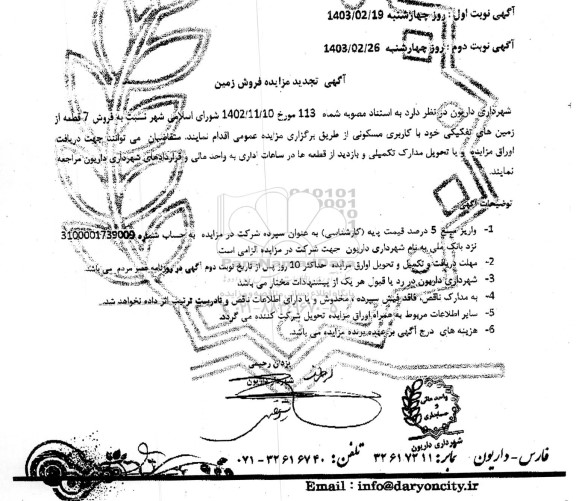 آگهی نوبت اول : روز چهارشنبه 1403/02/19
آگهی نوبت دوم : روز چهارشنبه 1403/02/26
آگهی تجدید مزایده فروش زمین
شهرداری داریون در نظر دارد به استناد مصوبه شماره 113 مورخ 1402/11/10 شورای اسلامی شهر نسبت به فروش 7 قطعه از
زمین های تفکیکی خود با کاربری مسکونی از طریق برگزاری مزایده عمومی اقدام نمایند. متقاضیان می توانند جهت دریافت
اوراق مزایده و یا تحویل مدارک تکمیلی و بازدید از قطعه ها در ساعات اداری به واحد مالی و قراردادهای شهرداری داریون مراجعه
نمایند.
توضیحات آگهی :
1- واریز مبلغ 5 درصد قیمت پایه (کارشناسی) به عنوان سپرده شرکت در مزایده به حساب شماره 3100001739009
نزد بانک ملی به نام شهرداری داریون جهت شرکت در مزایده الزامی است.
2- مهلت دریافت و تکمیل و تحویل اوراق مزایده حداکثر 10 روز پس از تاریخ نوبت دوم آگهی در روزنامه عصر مردم می باشد.
3- شهرداری داریون در رد یا قبول هر یک از پیشنهادات مختار می باشد.
4- به مدارک ناقص، فاقد فیش سپرده ، مخدوش و یا دارای اطلاعات ناقص و نادرست ترتیب اثر داده نخواهد شد.
5- سایر اطلاعات مربوط به همراه اوراق مزایده تحویل شرکت کننده می گردد.
6- هزینه های درج آگهی بر عهده برنده مزایده می باشد.
یزدان رحیمی
شهردار داریون
واحد مالی
و
حسابداری
شهرداری داریون
فارس - داریون نمابر: ۳۲۶۱۷۲۱۱ تلفن: ۳۲۶۱۶۷۴۰ - ۰۷۱
Email : info@daryoncity.ir